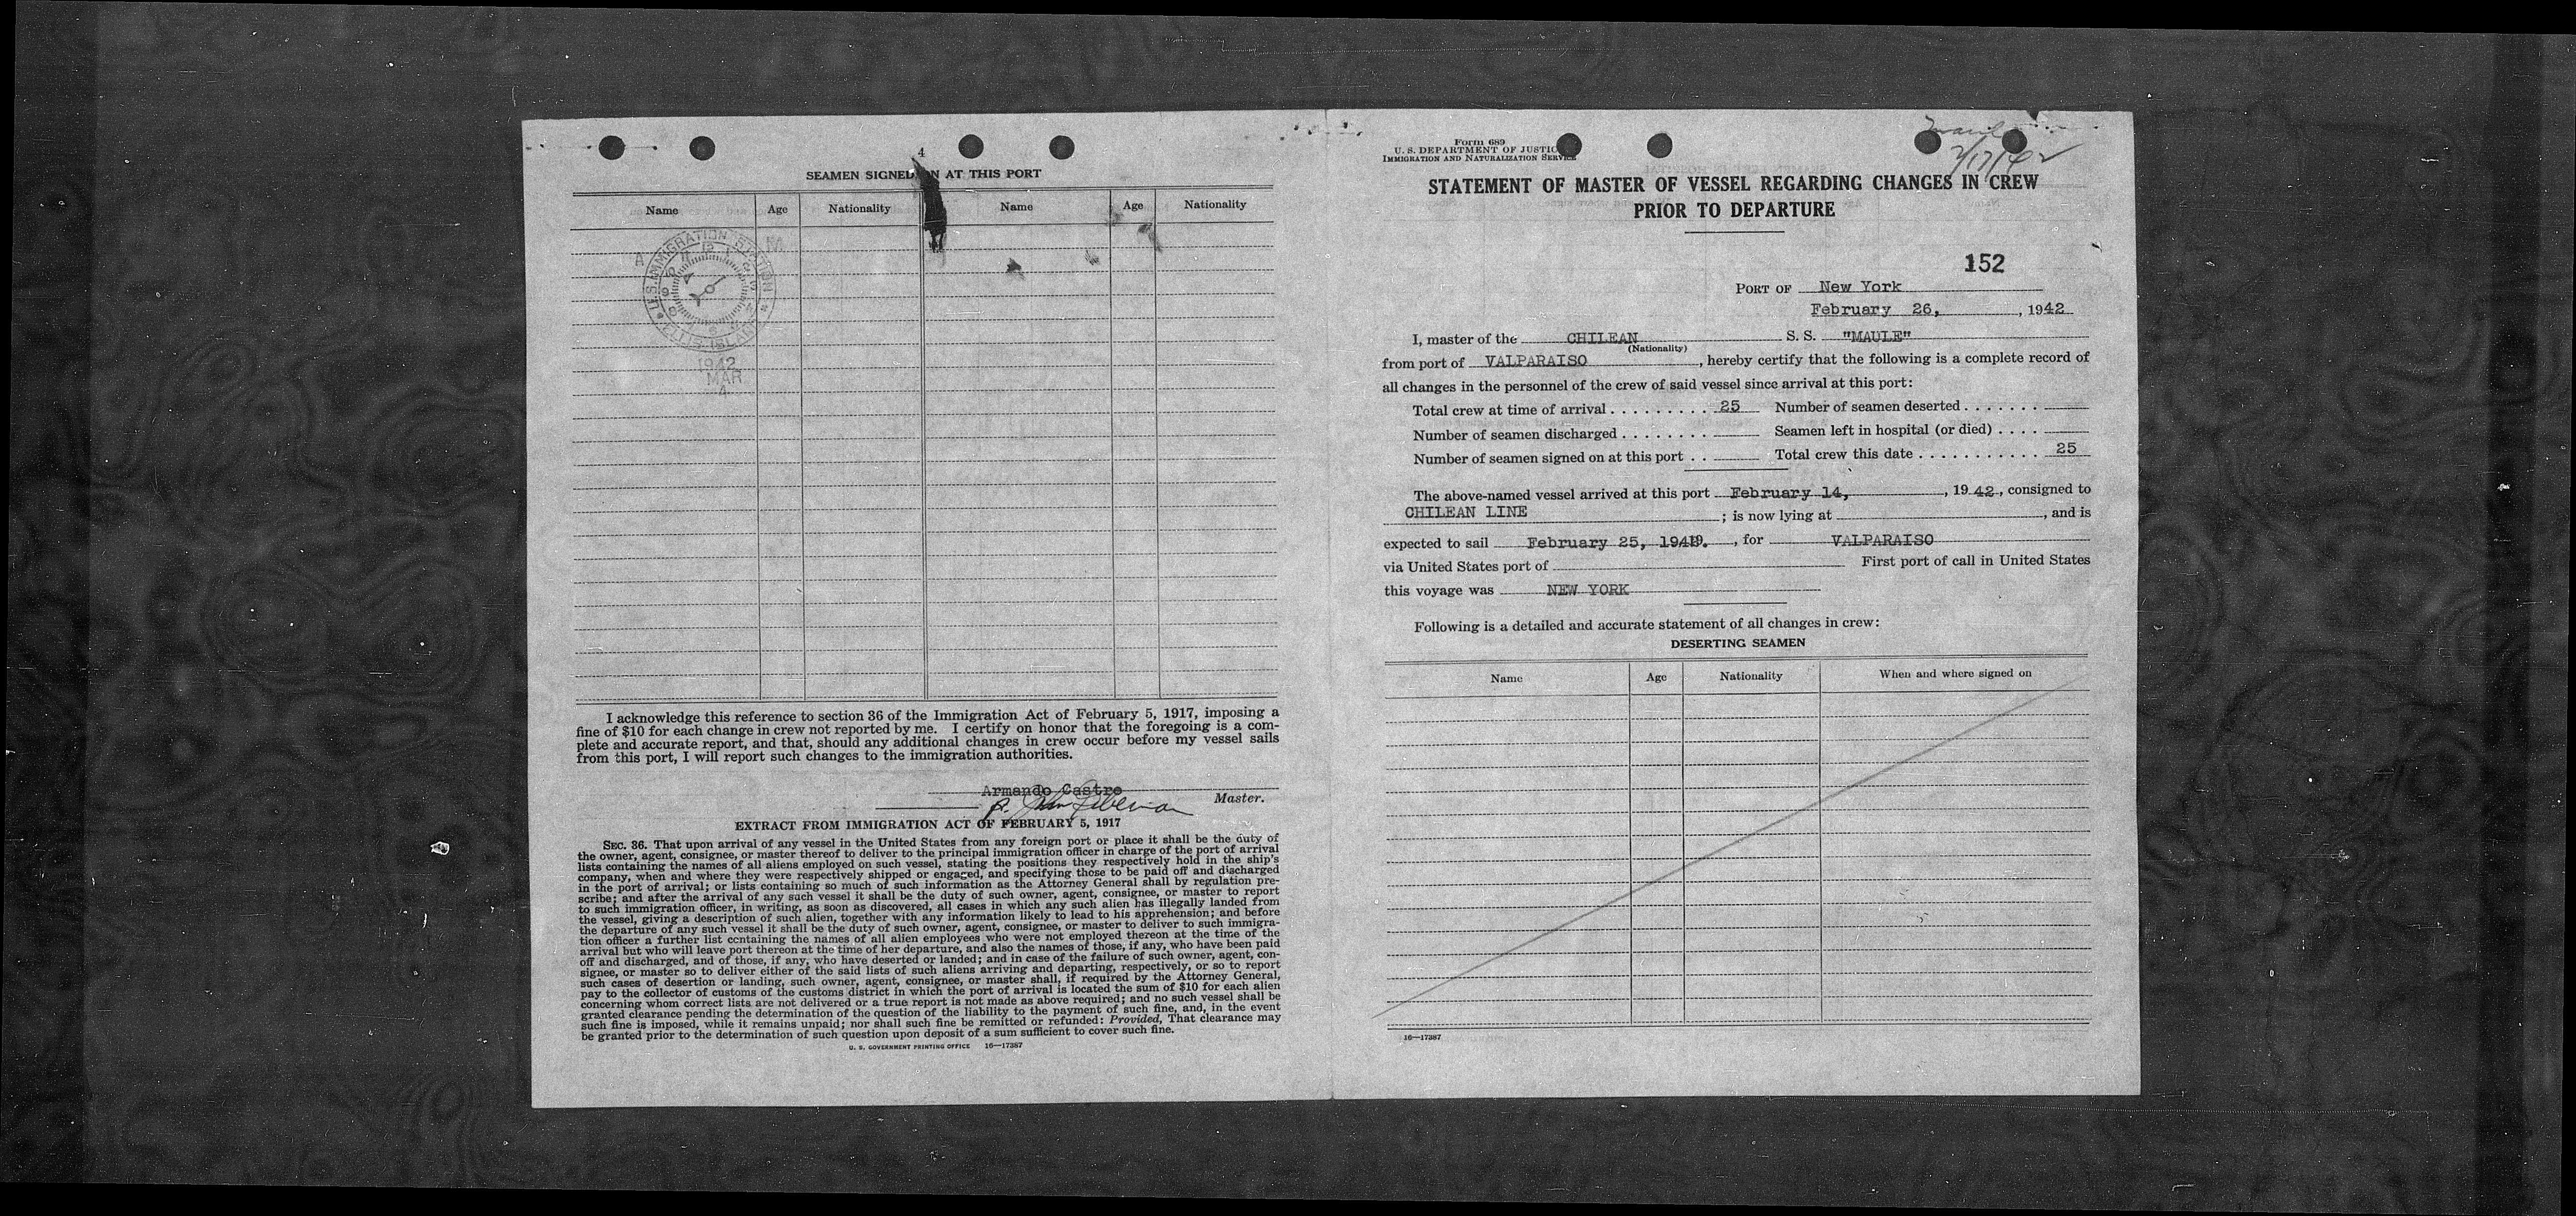 4
SEAMEN SIGNED ON AT THIS PORT
Name Age Nationality Name Age Nationality
U.S. IMMIGRATION STATION
ELLIS ISLAND
1942
MAR
4
I acknowledge this reference to section 36 of the Immigration Act of February 5, 1917, imposing a
fine of $10 for each change in crew not reported by me. I certify on honor that the foregoing is a com-
plete and accurate report, and that, should any additional changes in crew occur before my vessel sails
from this port, I will report such changes to the immigration authorities.
Armando Castro
Master.
EXTRACT FROM IMMIGRATION ACT OF FEBRUARY 5, 1917
SEC. 36. That upon arrival of any vessel in the United States from any foreign port or place it shall be the duty of
the owner, agent, consignee, or master thereof to deliver to the principal immigration officer in charge of the port of arrival
lists containing the names of all aliens employed on such vessel, stating the positions they respectively hold in the ship's
company, when and where they were respectively shipped or engaged, and specifying those to be paid off and discharged
in the port of arrival; or lists containing so much of such information as the Attorney General shall by regulation pre-
scribe; and after the arrival of any such vessel it shall be the duty of such owner, agent, consignee, or master to report
to such immigration officer, in writing, as soon as discovered, all cases in which any such alien has illegally landed from
the vessel, giving a description of such alien, together with any information likely to lead to his apprehension; and before
the departure of any such vessel it shall be the duty of such owner, agent, consignee, or master to deliver to such immigra-
tion officer a further list containing the names of all alien employees who were not employed thereon at the time of the
arrival but who will leave port thereon at the time of her departure, and also the names of those, if any, who have been paid
off and discharged, and of those, if any, who have deserted or landed; and in case of the failure of such owner, agent, con-
signee, or master so to deliver either of the said lists of such aliens arriving and departing, respectively, or so to report
such cases of desertion or landing, such owner, agent, consignee, or master shall, if required by the Attorney General,
pay to the collector of customs of the customs district in which the port of arrival is located the sum of $10 for each alien
concerning whom correct lists are not delivered or a true report is not made as above required; and no such vessel shall be
granted clearance pending the determination of the question of the liability to the payment of such fine, and, in the event
such fine is imposed, while it remains unpaid; nor shall such fine be remitted or refunded: Provided, That clearance may
be granted prior to the determination of such question upon deposit of a sum sufficient to cover such fine.
U. S. GOVERNMENT PRINTING OFFICE 16—17387
Form 689
U. S. DEPARTMENT OF JUSTICE
IMMIGRATION AND NATURALIZATION SERVICE
2/17/42
STATEMENT OF MASTER OF VESSEL REGARDING CHANGES IN CREW
PRIOR TO DEPARTURE
152
PORT OF New York
February 26, , 1942
I, master of the CHILEAN S. S. "MAULE"
(Nationality)
from port of VALPARAISO , hereby certify that the following is a complete record of
all changes in the personnel of the crew of said vessel since arrival at this port:
Total crew at time of arrival . . . . . . . . . 25 Number of seamen deserted . . . . . . .
Number of seamen discharged . . . . . . . . Seamen left in hospital (or died) . . . .
Number of seamen signed on at this port . . Total crew this date . . . . . . . . . . . 25
The above-named vessel arrived at this port February 14, , 1942, consigned to
CHILEAN LINE ; is now lying at , and is
expected to sail February 25, 19 , for VALPARAISO
via United States port of First port of call in United States
this voyage was NEW YORK
Following is a detailed and accurate statement of all changes in crew:
DESERTING SEAMEN
Name Age Nationality When and where signed on
16—17387